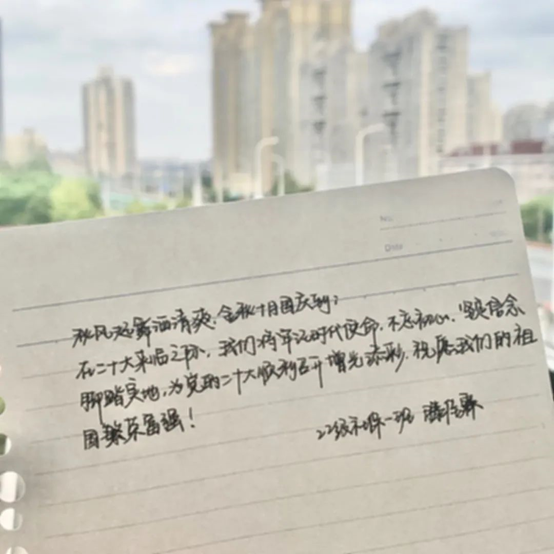 No.
Date
秋风起舞洒清爽,金秋十月国庆到;
在二十大来临之际,我们将牢记时代使命,不忘初心,坚定信念
脚踏实地,为党的二十大顺利召开增光添彩,祝愿我们的祖
国繁荣富强!
22级 一班